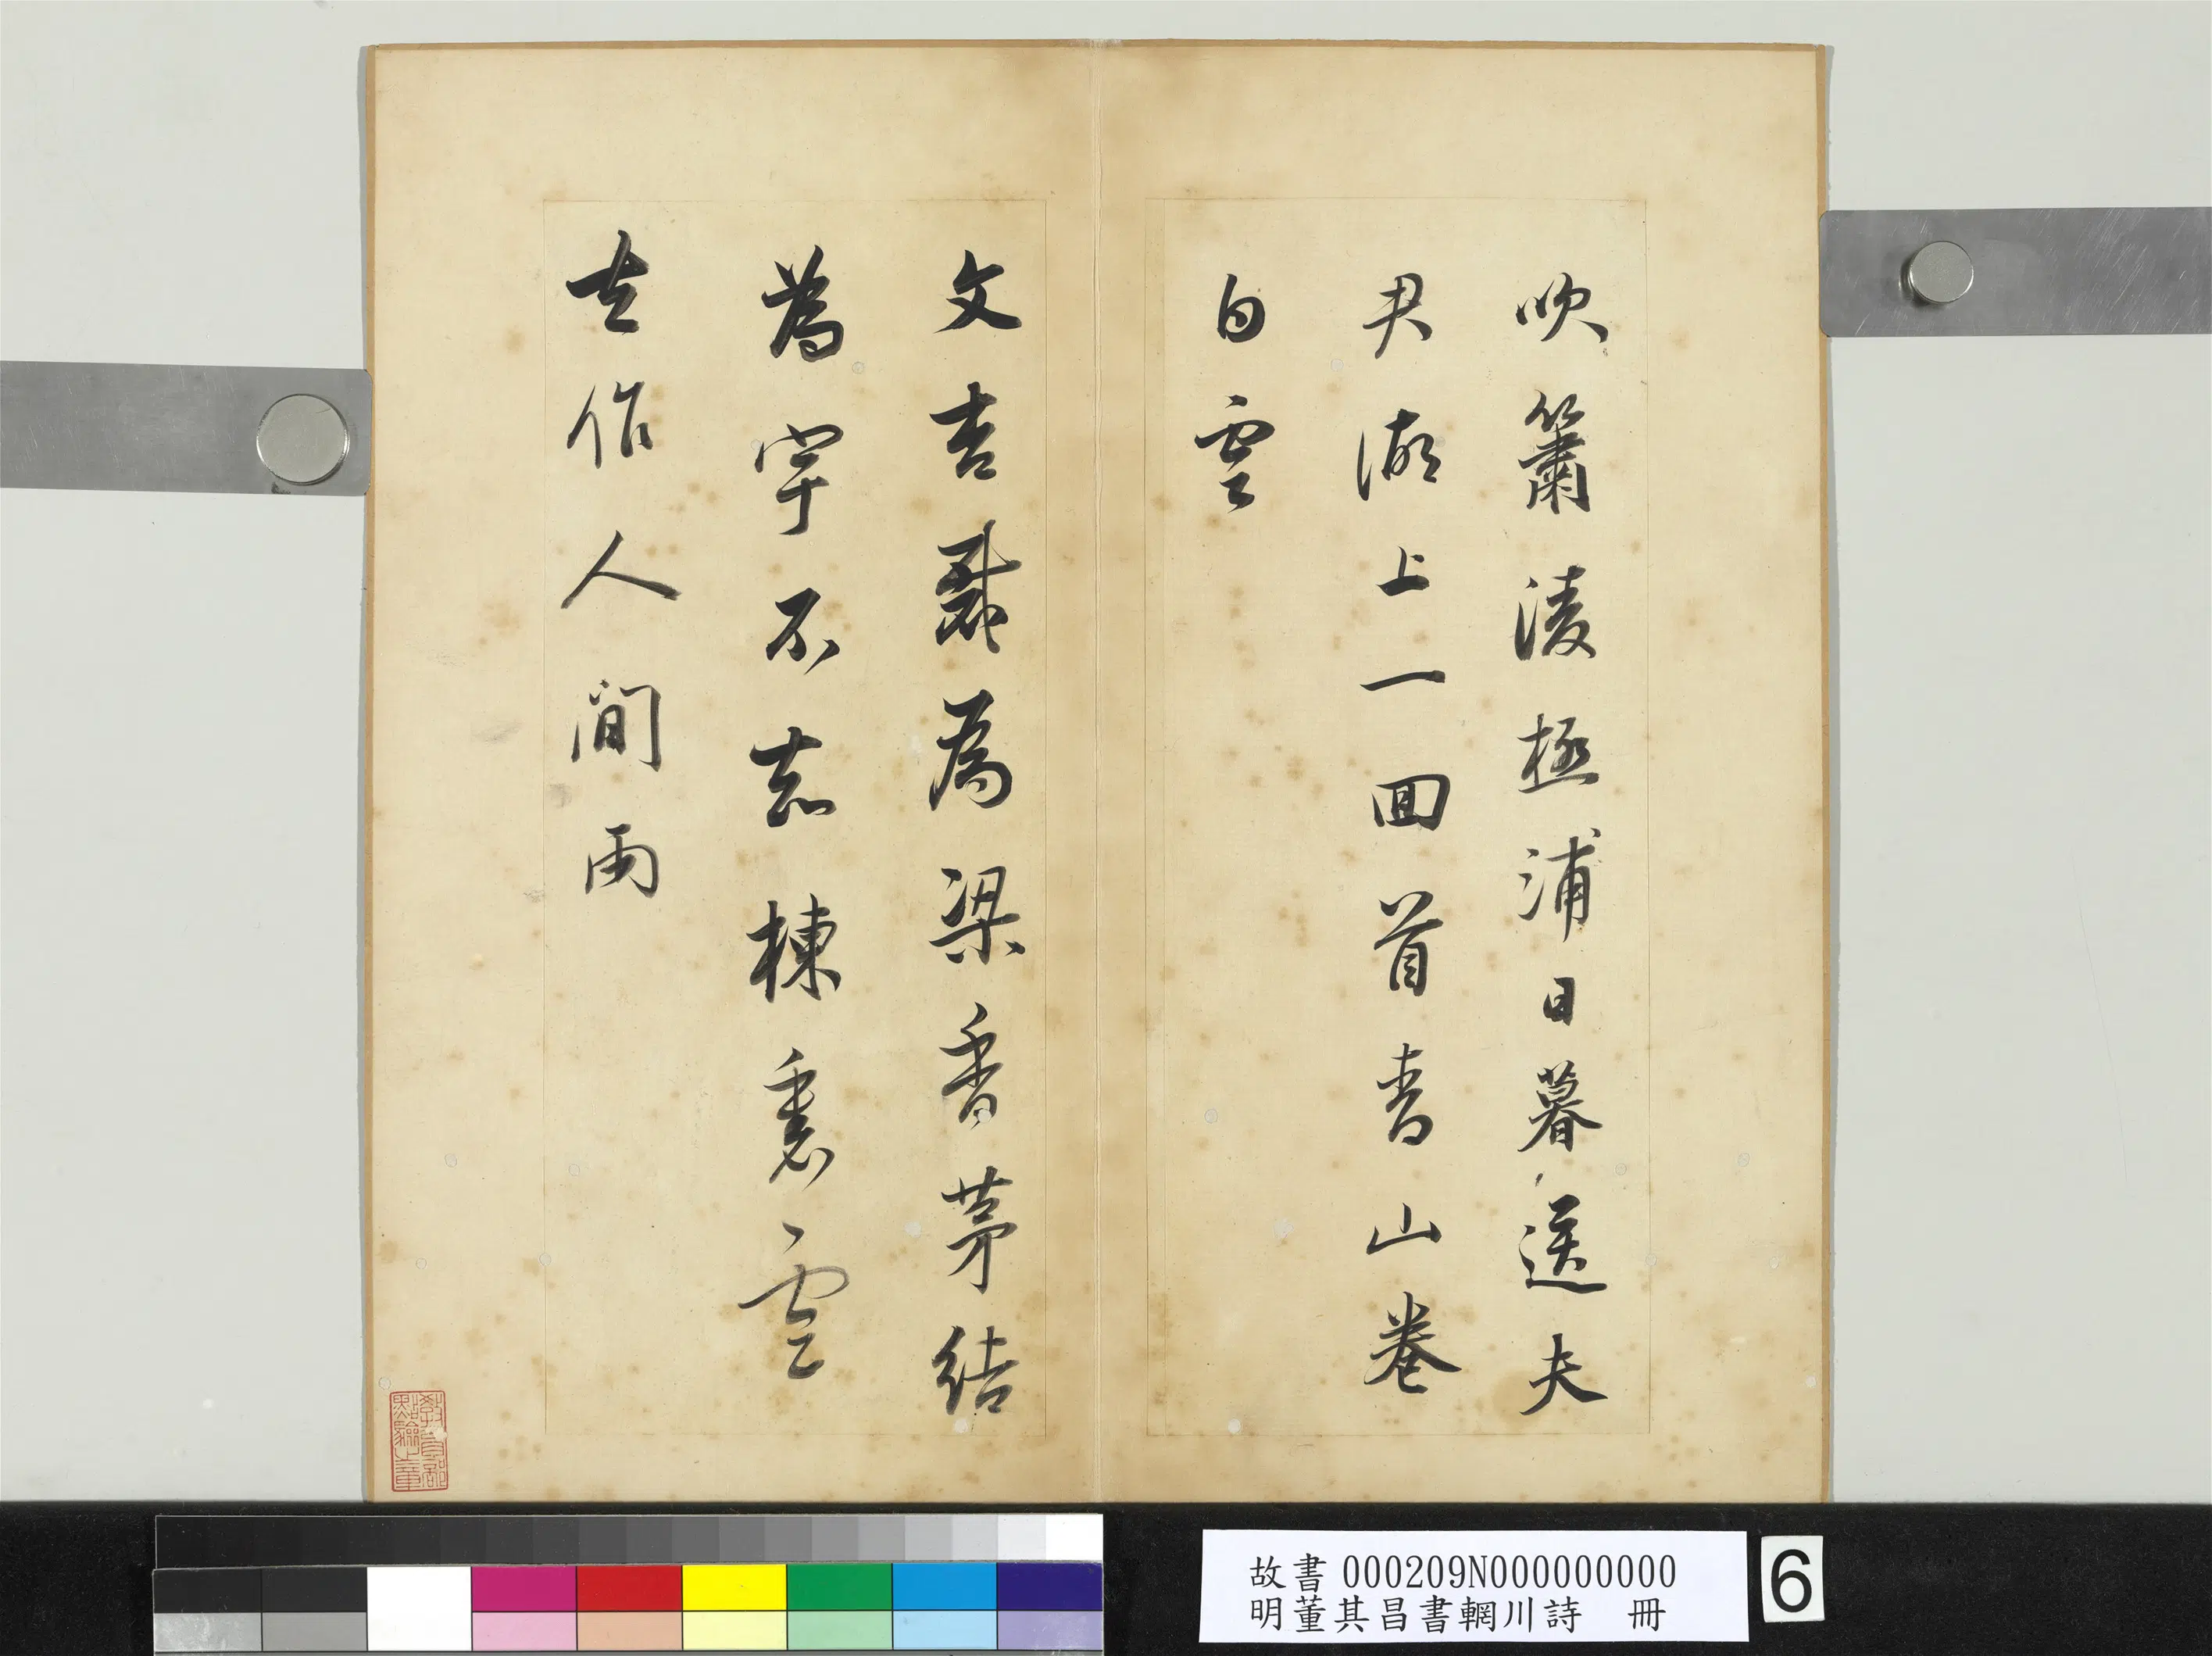 吹簫淩極浦日暮送夫
君湖上一回首青山卷
白雲
文杏裁為梁香茅結
為宇不知棟裏雲
去作人間雨
教育部點驗之章
故書 000209N000000000
明董其昌書輞川詩 冊
6